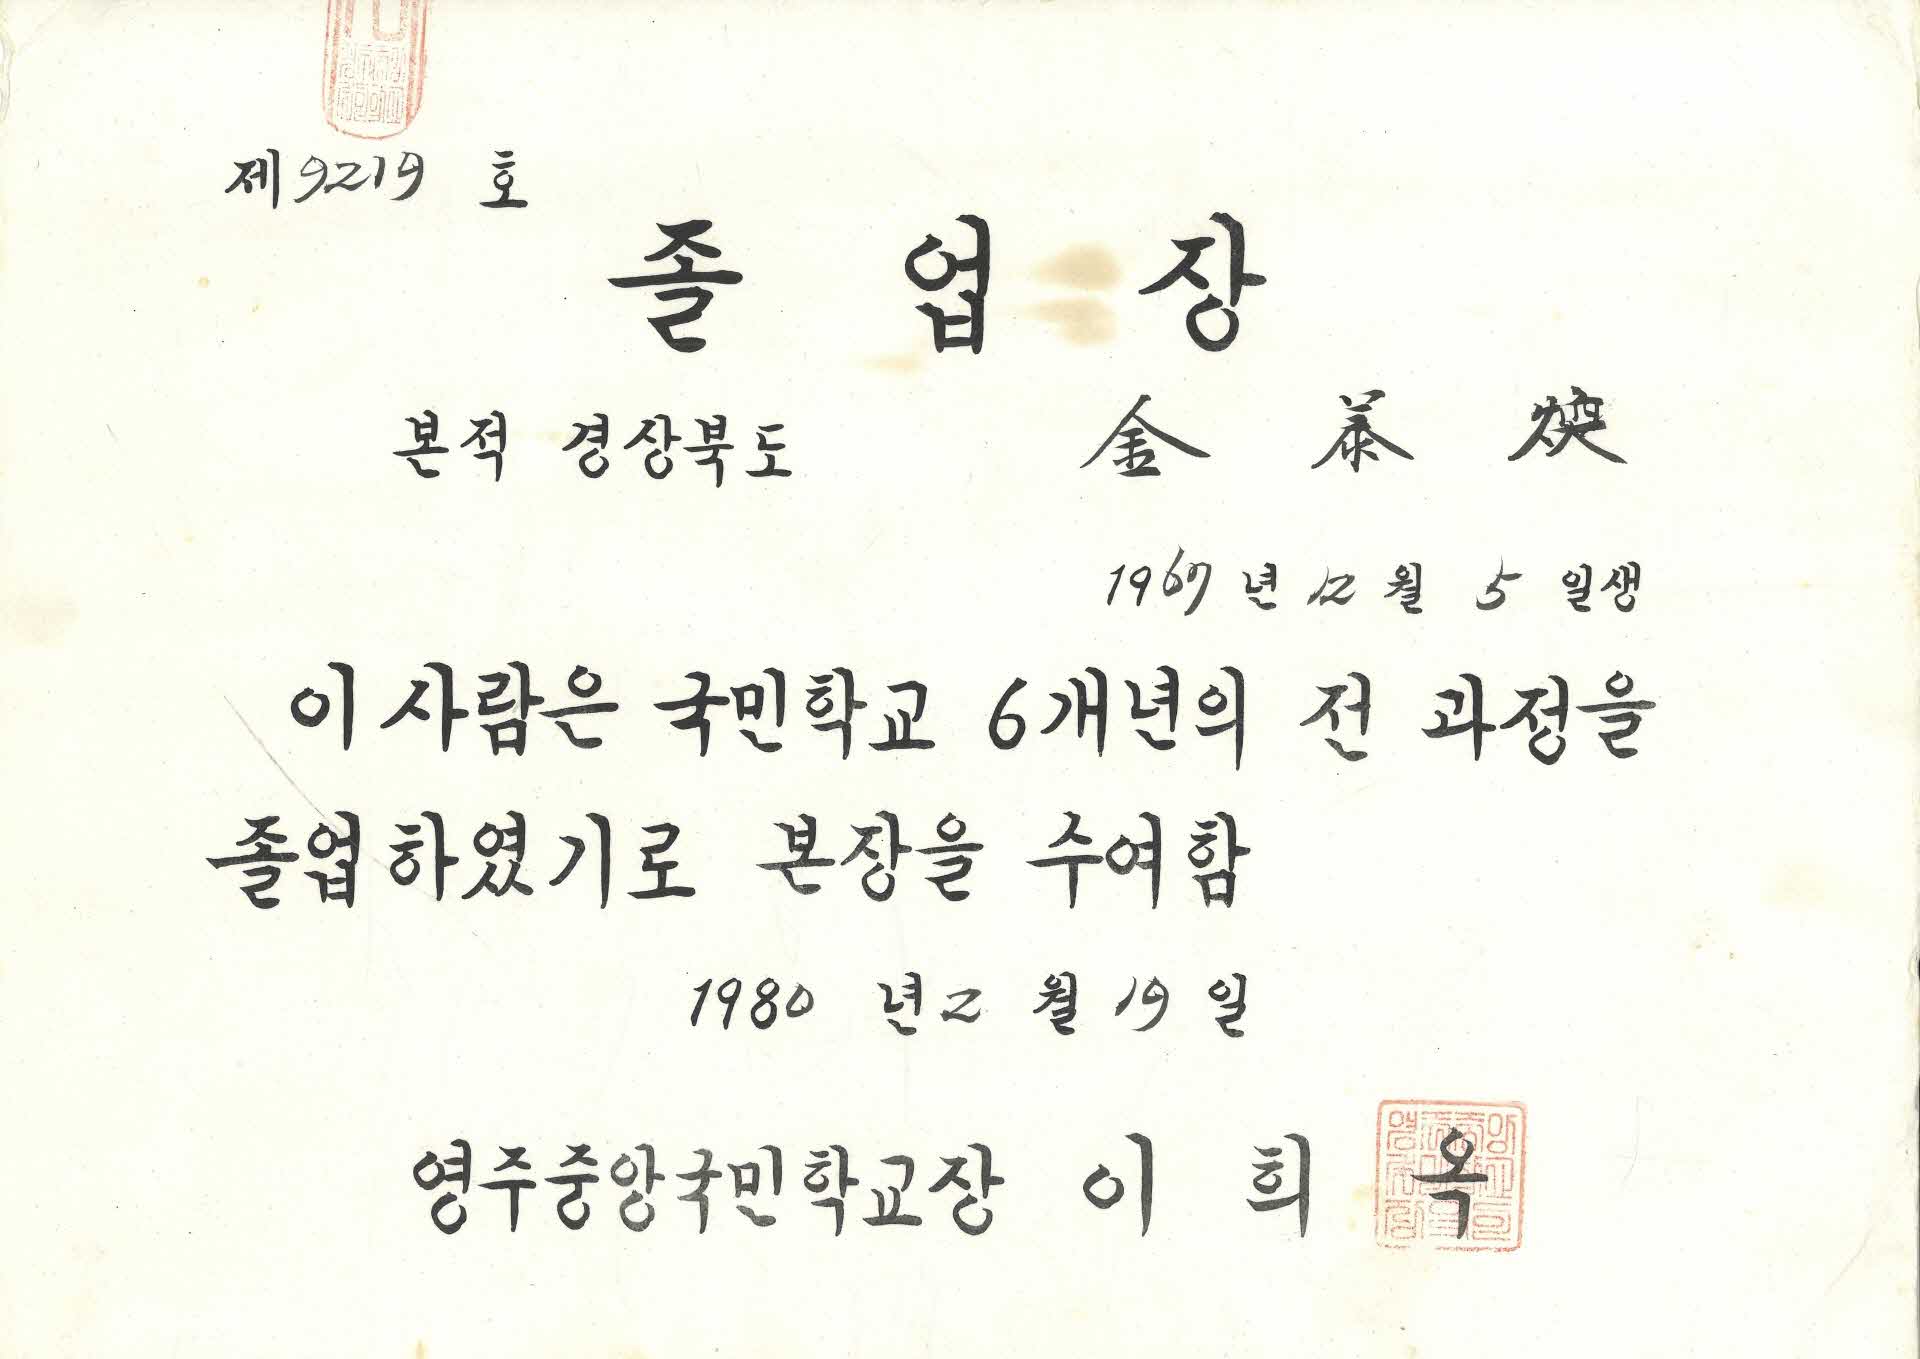 제 9219 호
졸 업 장
본적 경상북도 金 泰 煥
1967 년 12 월 5 일생
이 사람은 국민학교 6개년의 전 과정을
졸업하였기로 본장을 수여함
1980 년 2 월 19 일
영주중앙국민학교장 이 희 옥